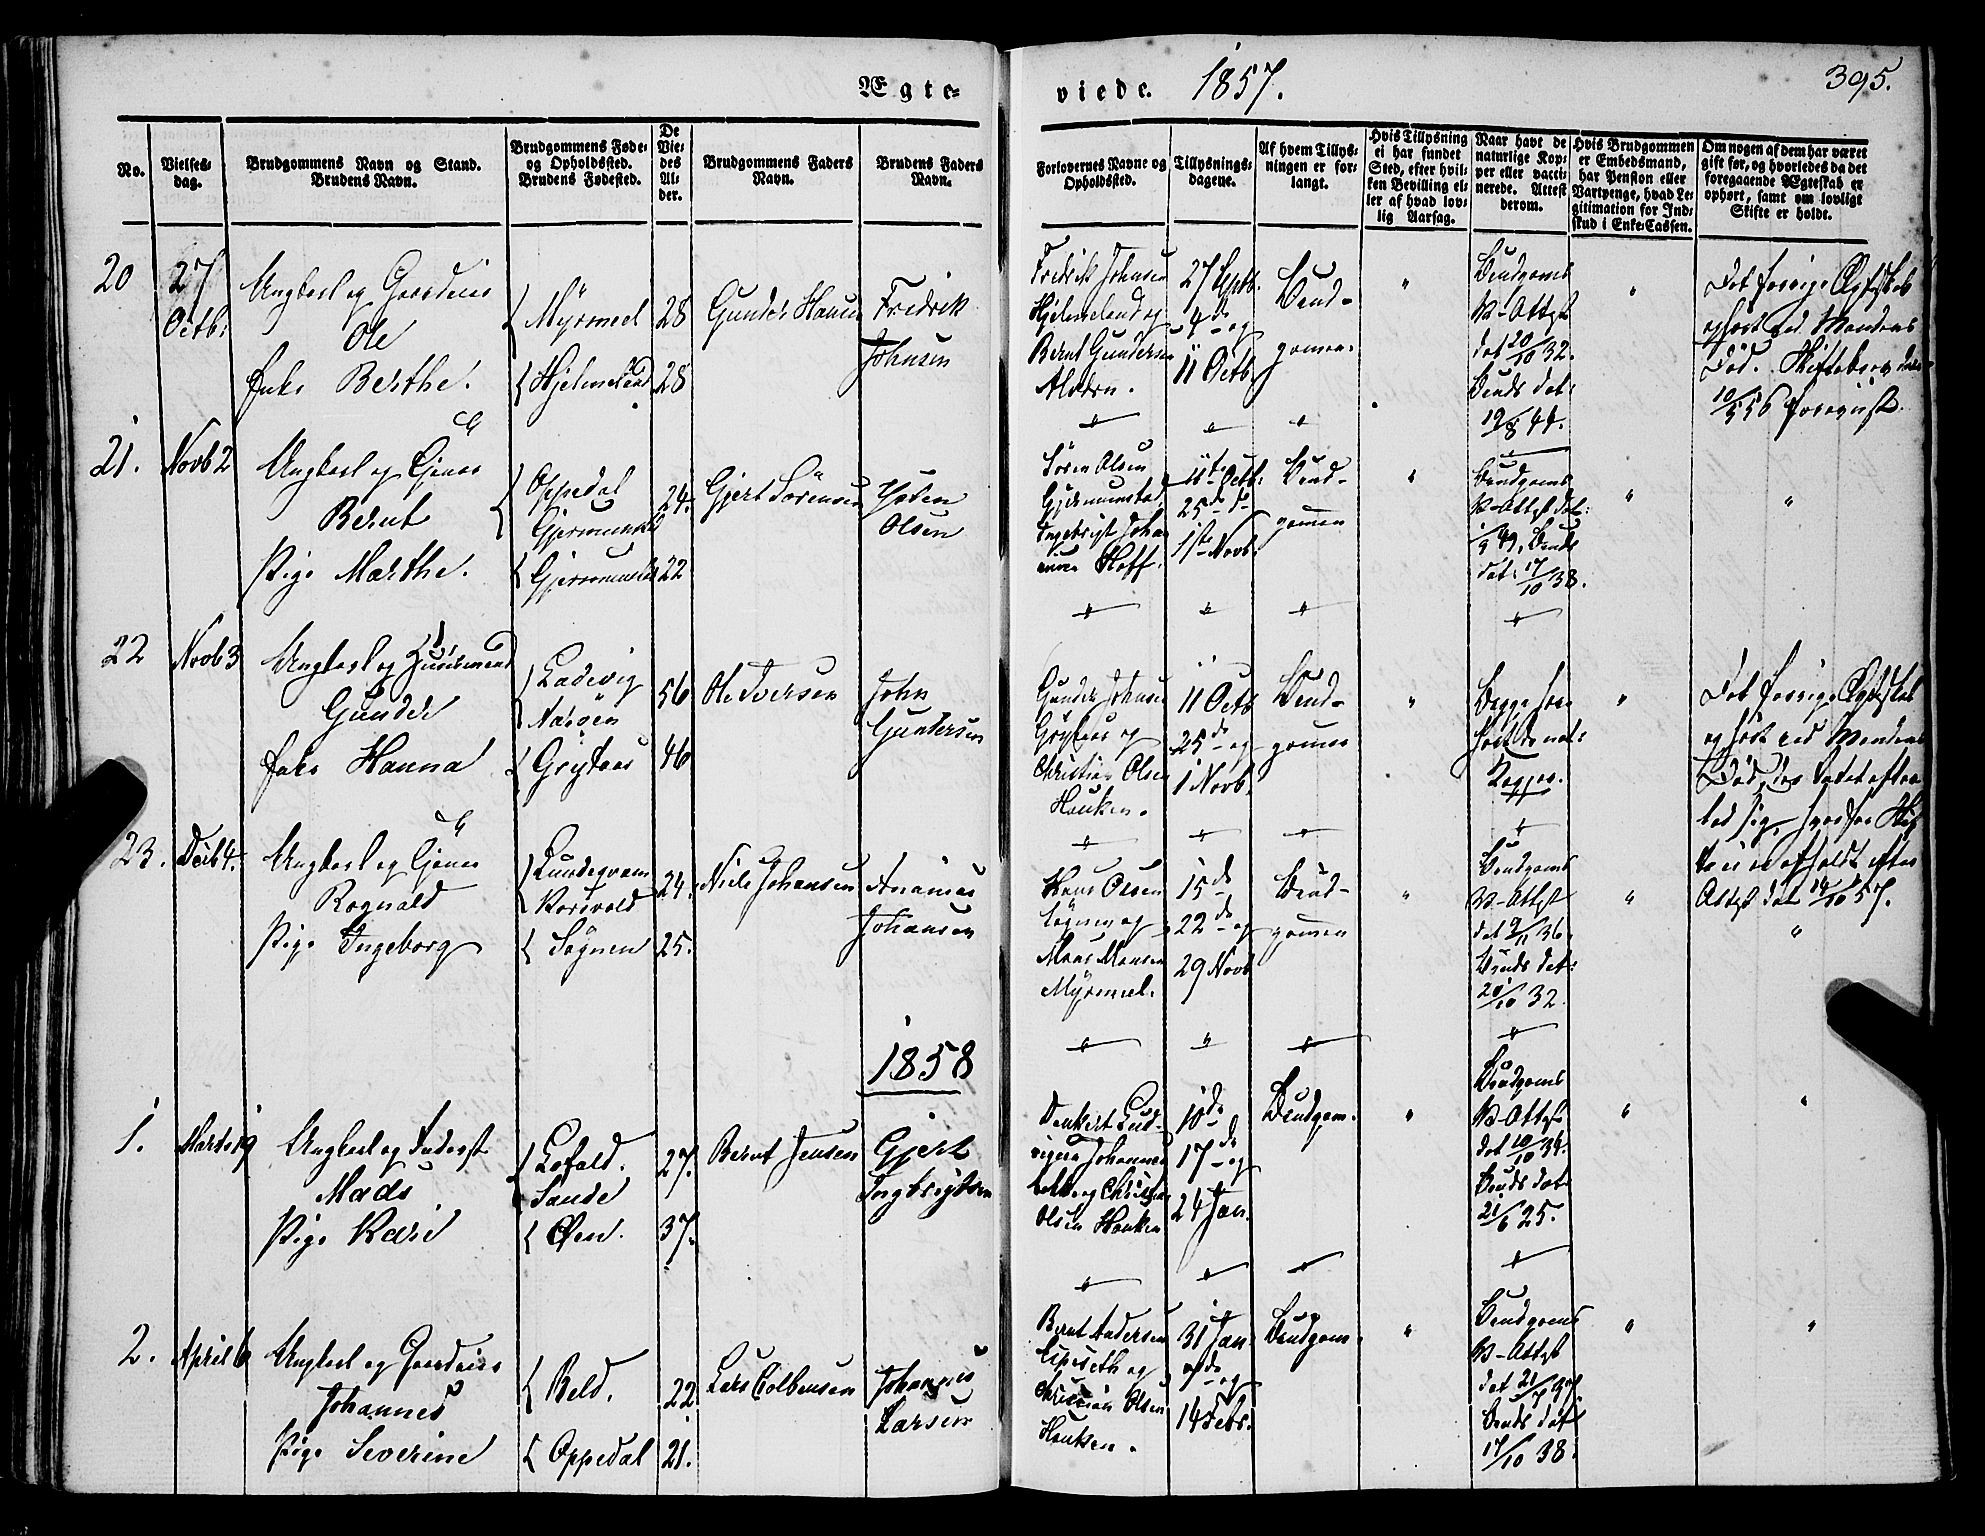 Ægte-
viede. 1857.
395.
No.
Vielses-
dag.
Brudgommens Navn og Stand.
Brudens Navn.
Brudgommens Føde-
og Opholdssted.
Brudens Fødested.
De
Vie-
des
Al-
der.
Brudgommens Faders
Navn.
Brudens Faders
Navn.
Forlovernes Navne og
Opholdssted.
Tillysnings-
dagene.
Af hvem Tillys-
ningen er for-
langt.
Hvis Tillysning
ei har fundet
Sted, efter hvil-
ken Bevilling el-
ler af hvad lov-
lig Aarsag.
Naar havt de
naturlige Kop-
per eller vacci-
nerede. Attest
derom.
Hvis Brudgommen
er Embedsmand,
har Pension eller
Vartpenge, hvad Le-
gitimation for Ind-
skud i Enke-Cassen.
Om nogen af dem har været
gift før, og hvorledes da det
foregaaende Ægteskab er
ophørt, samt om lovligt
Skifte er holdt.
20
27
Octb:
Ungkarl og Gaardeier
Ole
Enke Berthe.
Myrmel
Hjelmeland
28
28
Gunder Hansen
Fredrik
Johnsen
Fredrik Johnsen
Hjelmeland og
Bernt Gundersen
27 Septb.
4de og
11 Octb.
Brud-
gommen.
"
Brudgoms
V-Attest
dat 20/10 32.
Bruds dat:
19/8 44.
"
Det forrige Ægteskab
ophørt ved Mandens
Død. Skiftebrev dat
10/5 56 forevist.
21.
Novb 2
Ungkarl og
Bernt
Pige Marthe.
Oppedal
Gjermunstad
Gjermunstad
24.
22
Gjert Sørensen
Olsen
Søren Olsen
Gjermunstad
Ingebrigt Johan
Hoff.
11te Octb:
25de do
1ste Novb.
Brud-
gommen
"
Brudgoms
V-Attest dat:
49, Bruds
dat: 17/10 38.
"
"
22
Novb 3
Ungkarl og Huusmand
Gunder
Enke Hanna
Ladevig
Grytøen
56
46
Ole Iversen
John
Gundersen
Gunder Johnsen
og
Christian Olsen
Hauken.
11 Octb
25de og
1 Novb.
Brud-
gommen
"
Begge have
havt de nat:
Kopper.
"
Det forrige Ægteskab
ophørt ved Mandens
Død,
sig, hvorfor Skif
te ei er afholdt efter
Attest dat 14/10 57.
23.
Decb 4.
Ungkarl og
Rognald
Pige Ingeborg
Lundeqvam
Korsvold
Søgnen
24.
25.
Niels Johansen
Ananias
Johansen
Hans Olsen
Søgnen og
Mons Monsen
Myrmel.
15de
22de og
29 Novb
Brud-
gommen
"
Brudgoms
V-Attest
dat 9/11 36.
Bruds dat:
20/10 32
"
"
1858
1.
Marts 19
Ungkarl og Inderst
Mads
Pige Kari
Lefald.
Sande
Øen.
27.
37.
Bernt Jensen
Gjert
Ingbrigtsen
Johannes
og Christian
Olsen Hauken
10de
17de og
24 Jan.
Brudgom.
"
Brudgoms
V-Attest
dat 10/10 34.
Bruds dat
21/6 25.
"
"
2.
April 6
Ungkarl og Gaardeier
Johannes
Pige Severine
Beld.
Oppedal
22
21.
Lars Colbensen
Johannes
Larsen
Bernt Andersen
og
Christian Olsen
Hauken.
31 Jan.
7de og
14 Febr.
Brudgom.
"
Brudgoms
V-Attest
dat
Bruds dat
17/10 38.
"
"